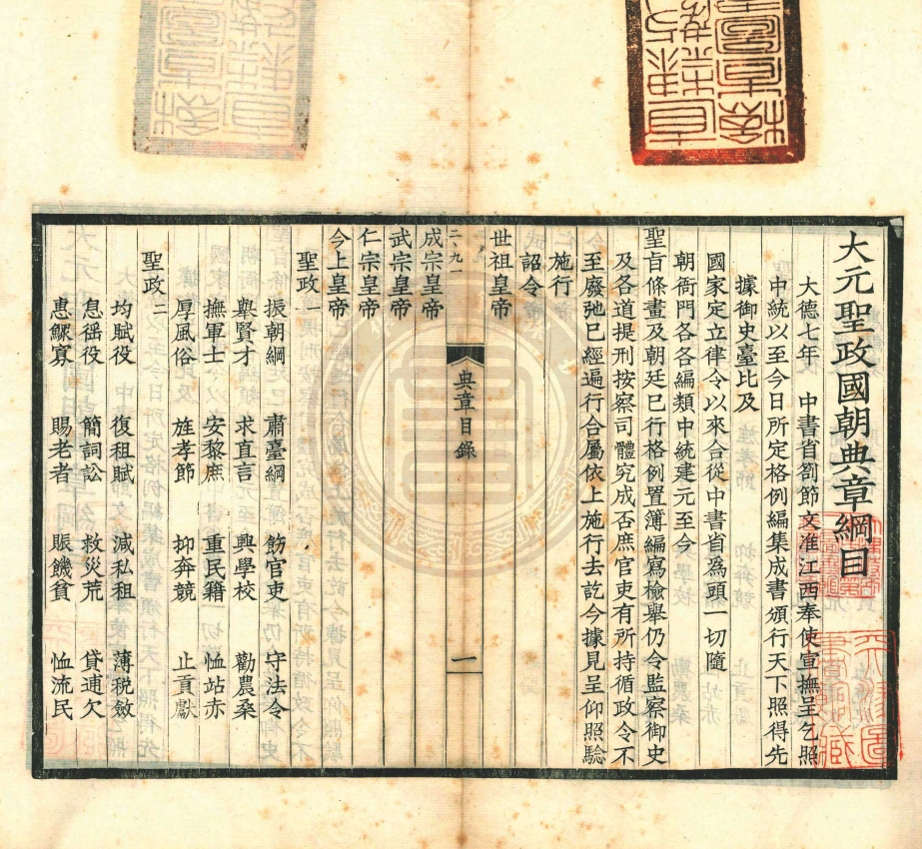 大元聖政國朝典章綱目
大德七年 中書省劄節文淮江西奉使宣撫呈乞照
中統以至今日所定格例編集成書頒行天下照得先
據御史臺比及
國家定立律令以來合從中書省爲頭一切隨
朝衙門各各編類中統建元至今
聖旨條畫及朝廷已行格例置簿編寫檢舉仍令監察御史
及各道提刑按察司體究成否庶官吏有所持循政令不
至廢弛已經遍行合屬依上施行去訖今據見呈仰照驗
施行
詔令一
世祖皇帝
二、九一
典章目錄
一
成宗皇帝
武宗皇帝
仁宗皇帝
今上皇帝
聖政一
振朝綱 肅臺綱 飭官吏 守法令
舉賢才 求直言 興學校 勸農桑
撫軍士 安黎庶 重民籍 恤站赤
厚風俗 旌孝節 抑奔競 止貢獻
聖政二
均賦役 復租賦 減私租 薄稅斂
息徭役 簡詞訟 救災荒 貸逋欠
惠鰥寡 賜老者 賑饑貧 恤流民